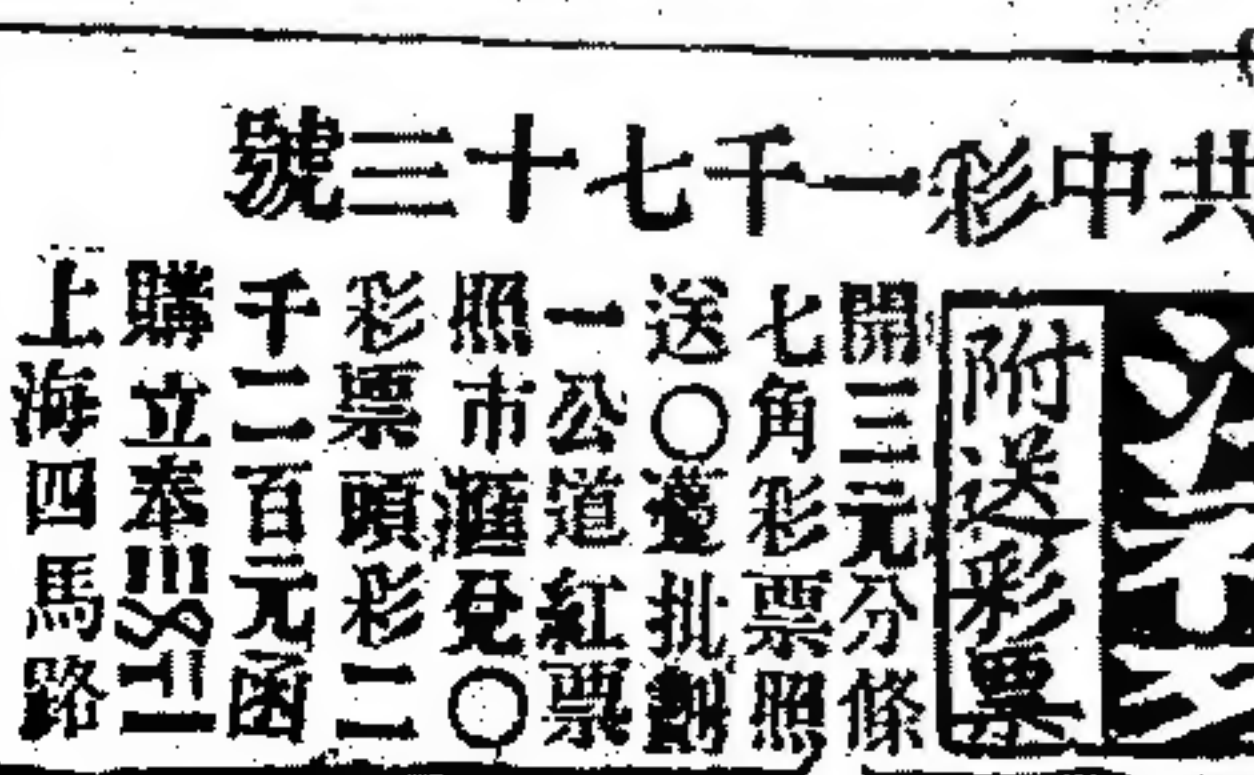 共中彩一千七十三號
附送彩票
開三元分條
七角彩票照
送〇躉批劃
一公道紅票
照市滙兌〇
彩票頭彩二
千二百元函
購立奉
上海四馬路